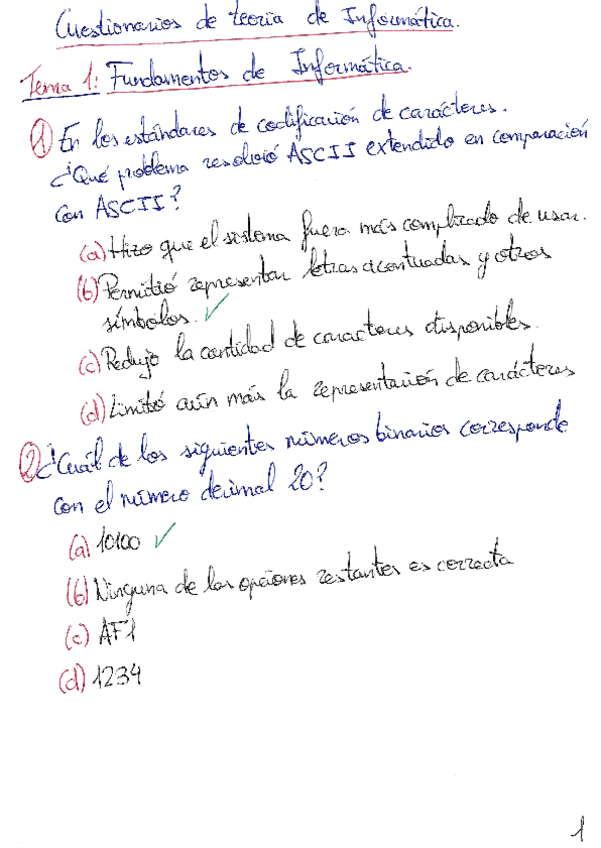 Cuestionarios de teoría de Informática.
Tema 1: Fundamentos de Informática.
1 En los estándares de codificación de carácteres.
¿Qué problema resolvió ASCII extendido en comparación
con ASCII?
(a) Hizo que el sistema fuera más complicado de usar.
(b) Permitió representar letras acentuadas y otros
símbolos. ✓
(c) Redujo la cantidad de caracteres disponibles.
(d) Limitó aún más la representación de carácteres
2 ¿Cuál de los siguientes números binarios corresponde
con el número decimal 20?
(a) 10100 ✓
(b) Ninguna de las opciones restantes es correcta
(c) AF1
(d) 1234
1